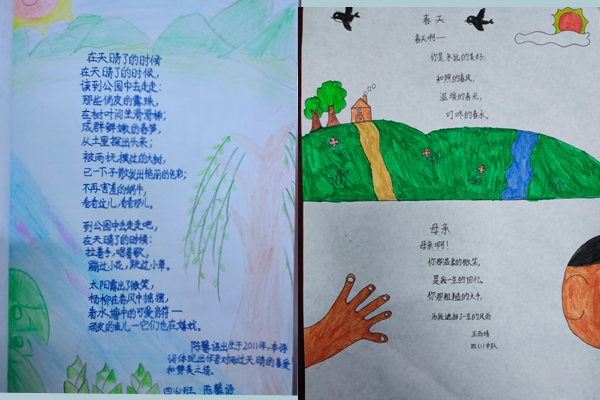 在天晴了的时候
在天晴了的时候，
该到公园中去走走：
那些俏皮的露珠，
在树叶间坐滑滑梯；
成群鲜嫩的春笋，
从土里探出头来；
被雨抚摸过的大树，
已一下子散发出艳丽的色彩；
不再害羞的蜗牛，
看看这儿，看看那儿。
到公园中去走走吧，
在天晴了的时候：
拉着手，唱着歌，
踢过小花，跃过小草。
太阳露出了微笑，
杨柳在春风中摇摆，
看水塘中的可爱音符——
顽皮的鱼儿一它们也在嬉戏。
陈馨语出生于2011年，本诗
词体现出作者对雨过天晴的喜爱
和赞美之情。
陈馨语
春天
春天啊——
你是永远的美好：
和煦的春风，
温暖的春光，
叮咚的春水。
母亲
母亲啊！
你那温柔的微笑，
是我一生的回忆。
你那粗糙的大手，
为我遮挡了一生的风雨
四(1)中队